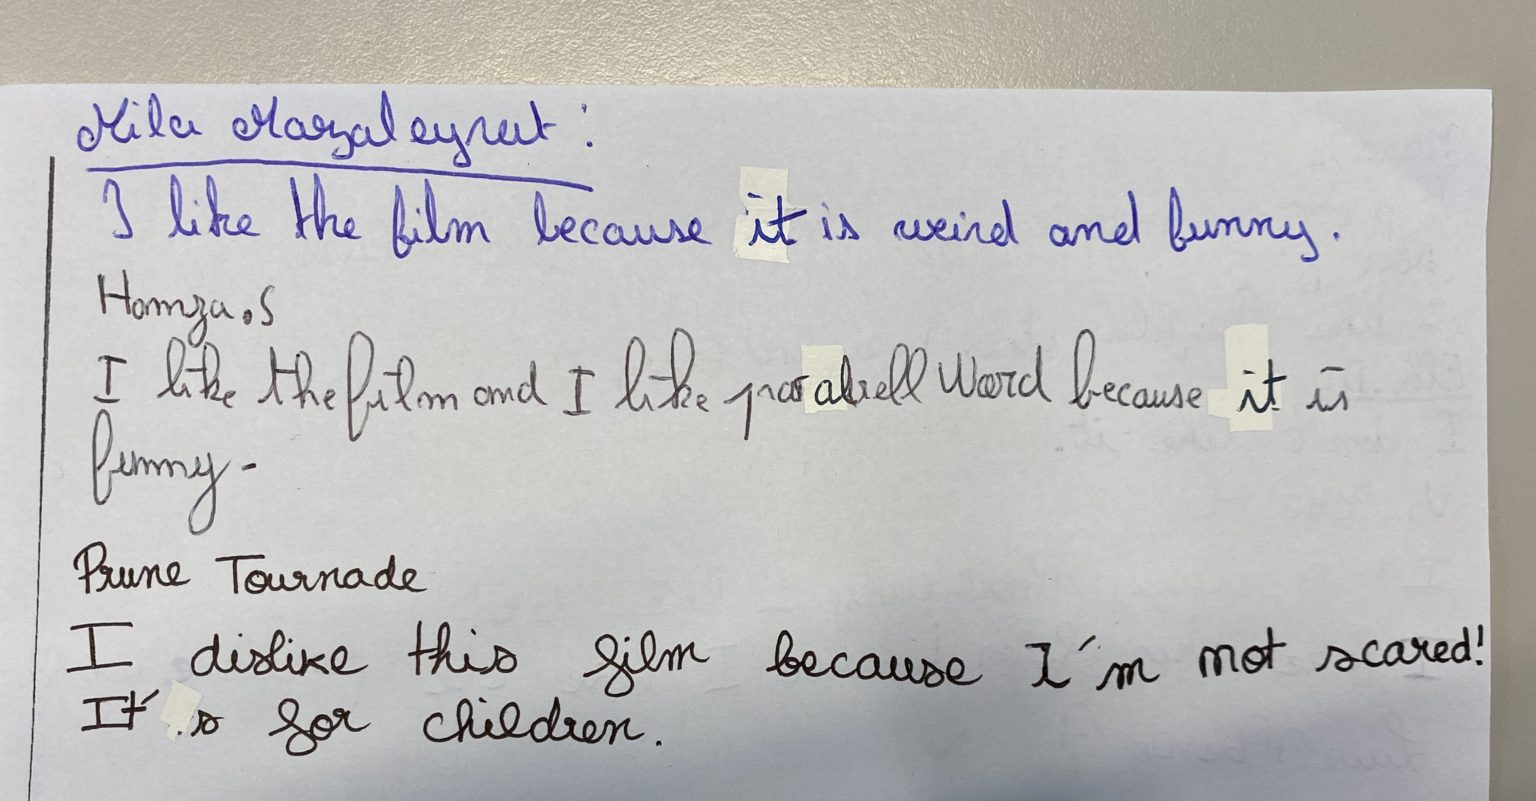 Mila Mazaleyrat :
I like the film because it is weird and funny.
Hamza.S
I like the film and I like parabell Word because it is
funny-
Prune Tournade
I dislike this film because I'm not scared!
It's for children.